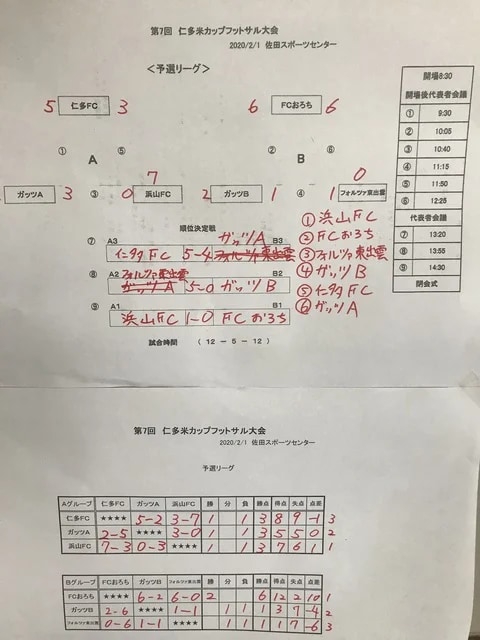 第7回 仁多米カップフットサル大会
2020/2/1 佐田スポーツセンター
＜予選リーグ＞
開場8:30
開場後代表者会議
5 仁多FC 3
6 FCおろち 6
① 9:30
② 10:05
① A ⑤
② B ⑥
③ 10:40
④ 11:15
7
0
⑤ 11:50
ガッツA 3 ③ 0 浜山FC 2 ガッツB 1 ④ 1 フォルツァ東出雲
⑥ 12:25
代表者会議
順位決定戦
① 浜山FC
⑦ 13:20
ガッツA
② FCおろち
⑧ 13:55
⑦ A3 B3
仁多FC 5-4 フォルツァ東出雲
③ フォルツァ東出雲
⑨ 14:30
閉会式
⑧ A2 フォルツァ東出雲 B2
ガッツA 5-0 ガッツB
④ ガッツB
⑤ 仁多FC
⑨ A1 B1
浜山FC 1-0 FCおろち
⑥ ガッツA
試合時間 ( 12 － 5 － 12 )
第7回 仁多米カップフットサル大会
2020/2/1 佐田スポーツセンター
予選リーグ
Aグループ 仁多FC ガッツA 浜山FC 勝 分 負 勝点 得点 失点 点差
仁多FC ★★★★ 5-2 3-7 1 1 3 8 9 -1 3
ガッツA 2-5 ★★★★ 3-0 1 1 3 5 5 0 2
浜山FC 7-3 0-3 ★★★★ 1 1 3 7 6 1 1
Bグループ FCおろち ガッツB フォルツァ東出雲 勝 分 負 勝点 得点 失点 点差
FCおろち ★★★★ 6-2 6-0 2 6 12 2 10 1
ガッツB 2-6 ★★★★ 1-1 1 1 1 3 7 -4 2
フォルツァ東出雲 0-6 1-1 ★★★★ 1 1 1 1 7 -6 3